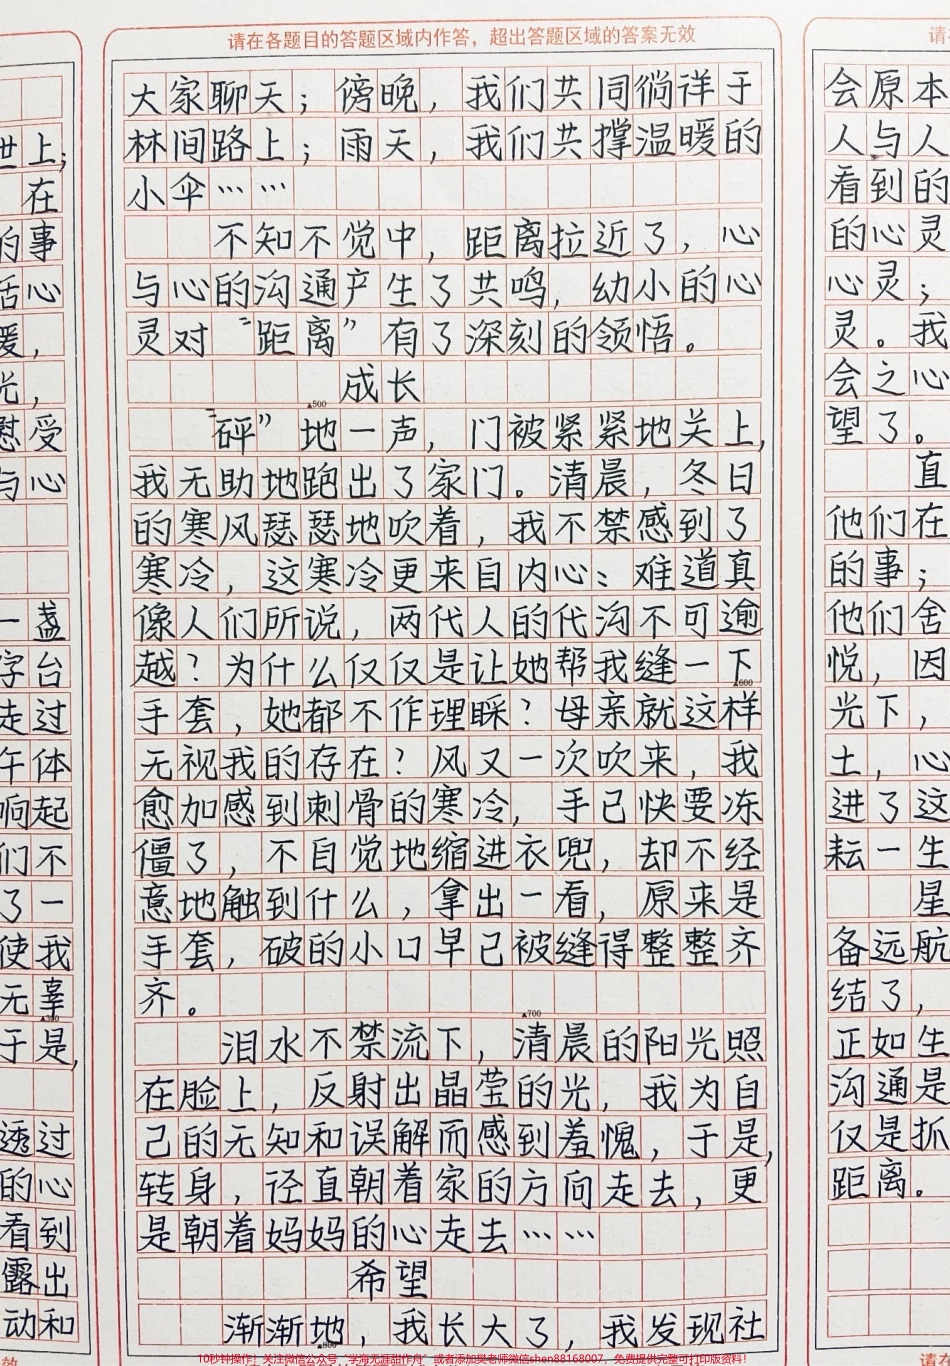 世上；
在
的事
活心
暖，
光，
慰受
与心
一盏
字台
走过
午体
响起
们不
了一
使我
无辜
▲300
于是，
透过
的心
看到
露出
动和
效
请在各题目的答题区域内作答，超出答题区域的答案无效
大家聊天；傍晚，我们共同徜徉于
林间路上；雨天，我们共撑温暖的
小伞……
不知不觉中，距离拉近了，心
与心的沟通产生了共鸣，幼小的心
灵对“距离”有了深刻的领悟。
成长
▲500
“砰”地一声，门被紧紧地关上，
我无助地跑出了家门。清晨，冬日
的寒风瑟瑟地吹着，我不禁感到了
寒冷，这寒冷更来自内心：难道真
像人们所说，两代人的代沟不可逾
越？为什么仅仅是让她帮我缝一下
▲600
手套，她都不作理睬？母亲就这样
无视我的存在？风又一次吹来，我
愈加感到刺骨的寒冷，手已快要冻
僵了，不自觉地缩进衣兜，却不经
意地触到什么，拿出一看，原来是
手套，破的小口早已被缝得整整齐
齐。
▲700
泪水不禁流下，清晨的阳光照
在脸上，反射出晶莹的光，我为自
己的无知和误解而感到羞愧，于是，
转身，径直朝着家的方向走去，更
是朝着妈妈的心走去……
希望
渐渐地，我长大了，我发现社
▲800
请在
会原本
人与人
看到的
的心灵
心灵；
灵。我
会之心
望了。
直
他们在
的事；
他们舍
悦，因
光下，
土，心
进了这
耘一生
星
备远航
结了，
正如生
沟通是
仅是抓
距离。
请在
10秒钟操作！关注微信公众号“学海无涯甜作舟”或者添加樊老师微信shen88168007，免费提供完整可打印版资料！